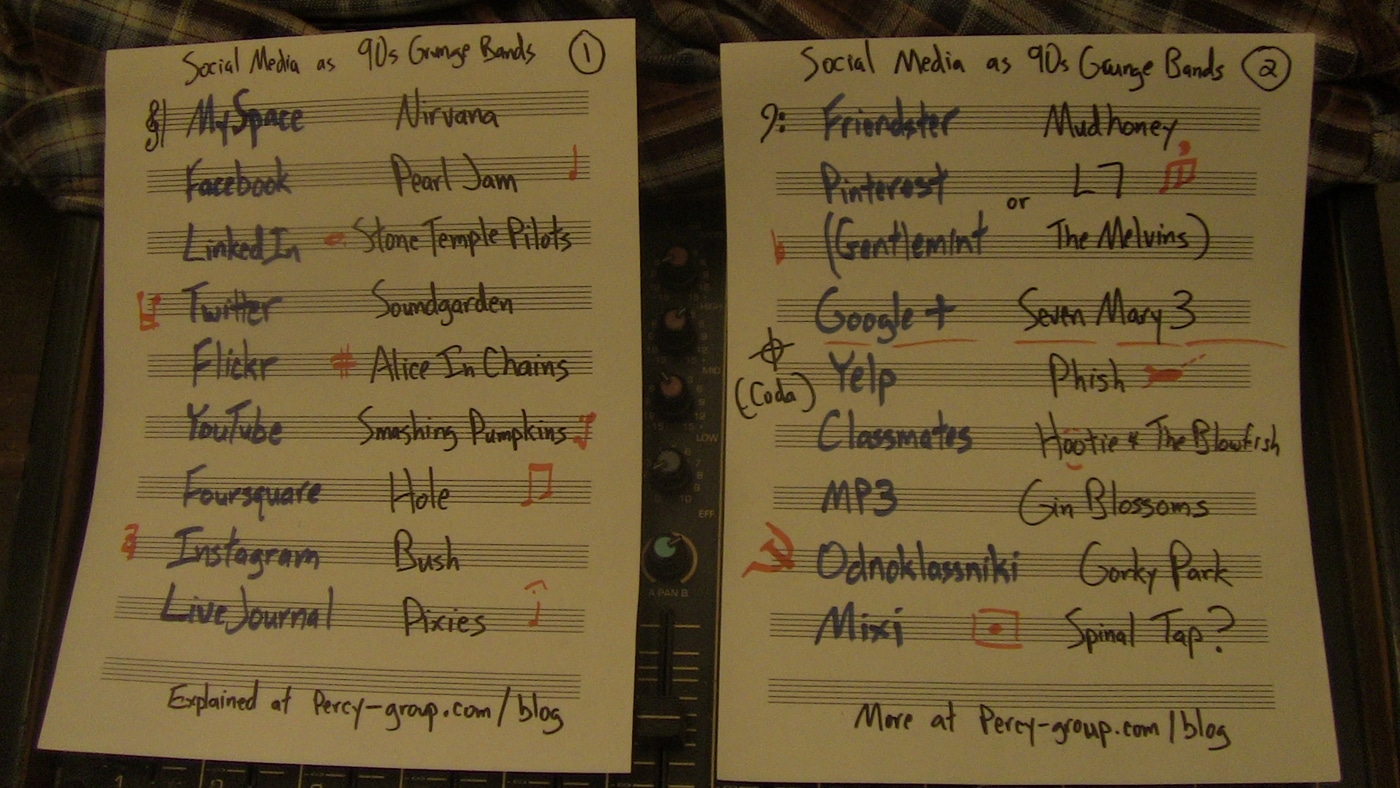 Social Media as 90s Grunge Bands 1
MySpace Nirvana
Facebook Pearl Jam
LinkedIn Stone Temple Pilots
Twitter Soundgarden
Flickr Alice In Chains
YouTube Smashing Pumpkins
Foursquare Hole
Instagram Bush
LiveJournal Pixies
Explained at Percy-group.com/blog
Social Media as 90s Grunge Bands 2
Friendster Mudhoney
Pinterest L7
or
(Gentlemint The Melvins)
Google+ Seven Mary 3
(Coda) Yelp Phish
Classmates Hootie & The Blowfish
MP3 Gin Blossoms
Odnoklassniki Gorky Park
Mixi Spinal Tap?
More at Percy-group.com/blog
HIGH
MID
LOW
EFF
A PAN B